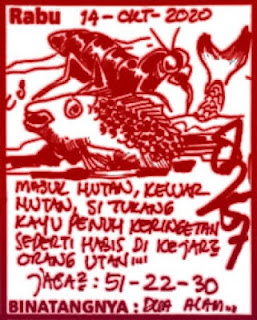 Rabu 14-OKT-2020
MASUK HUTAN, KELUAR
HUTAN, SI TUKANG
KAYU PENUH KERINGETAN
SEPERTI HABIS DI KEJAR2
ORANG UTAN!!!
JAGA2: 51-22-30
BINATANGNYA: DUA ALAM...